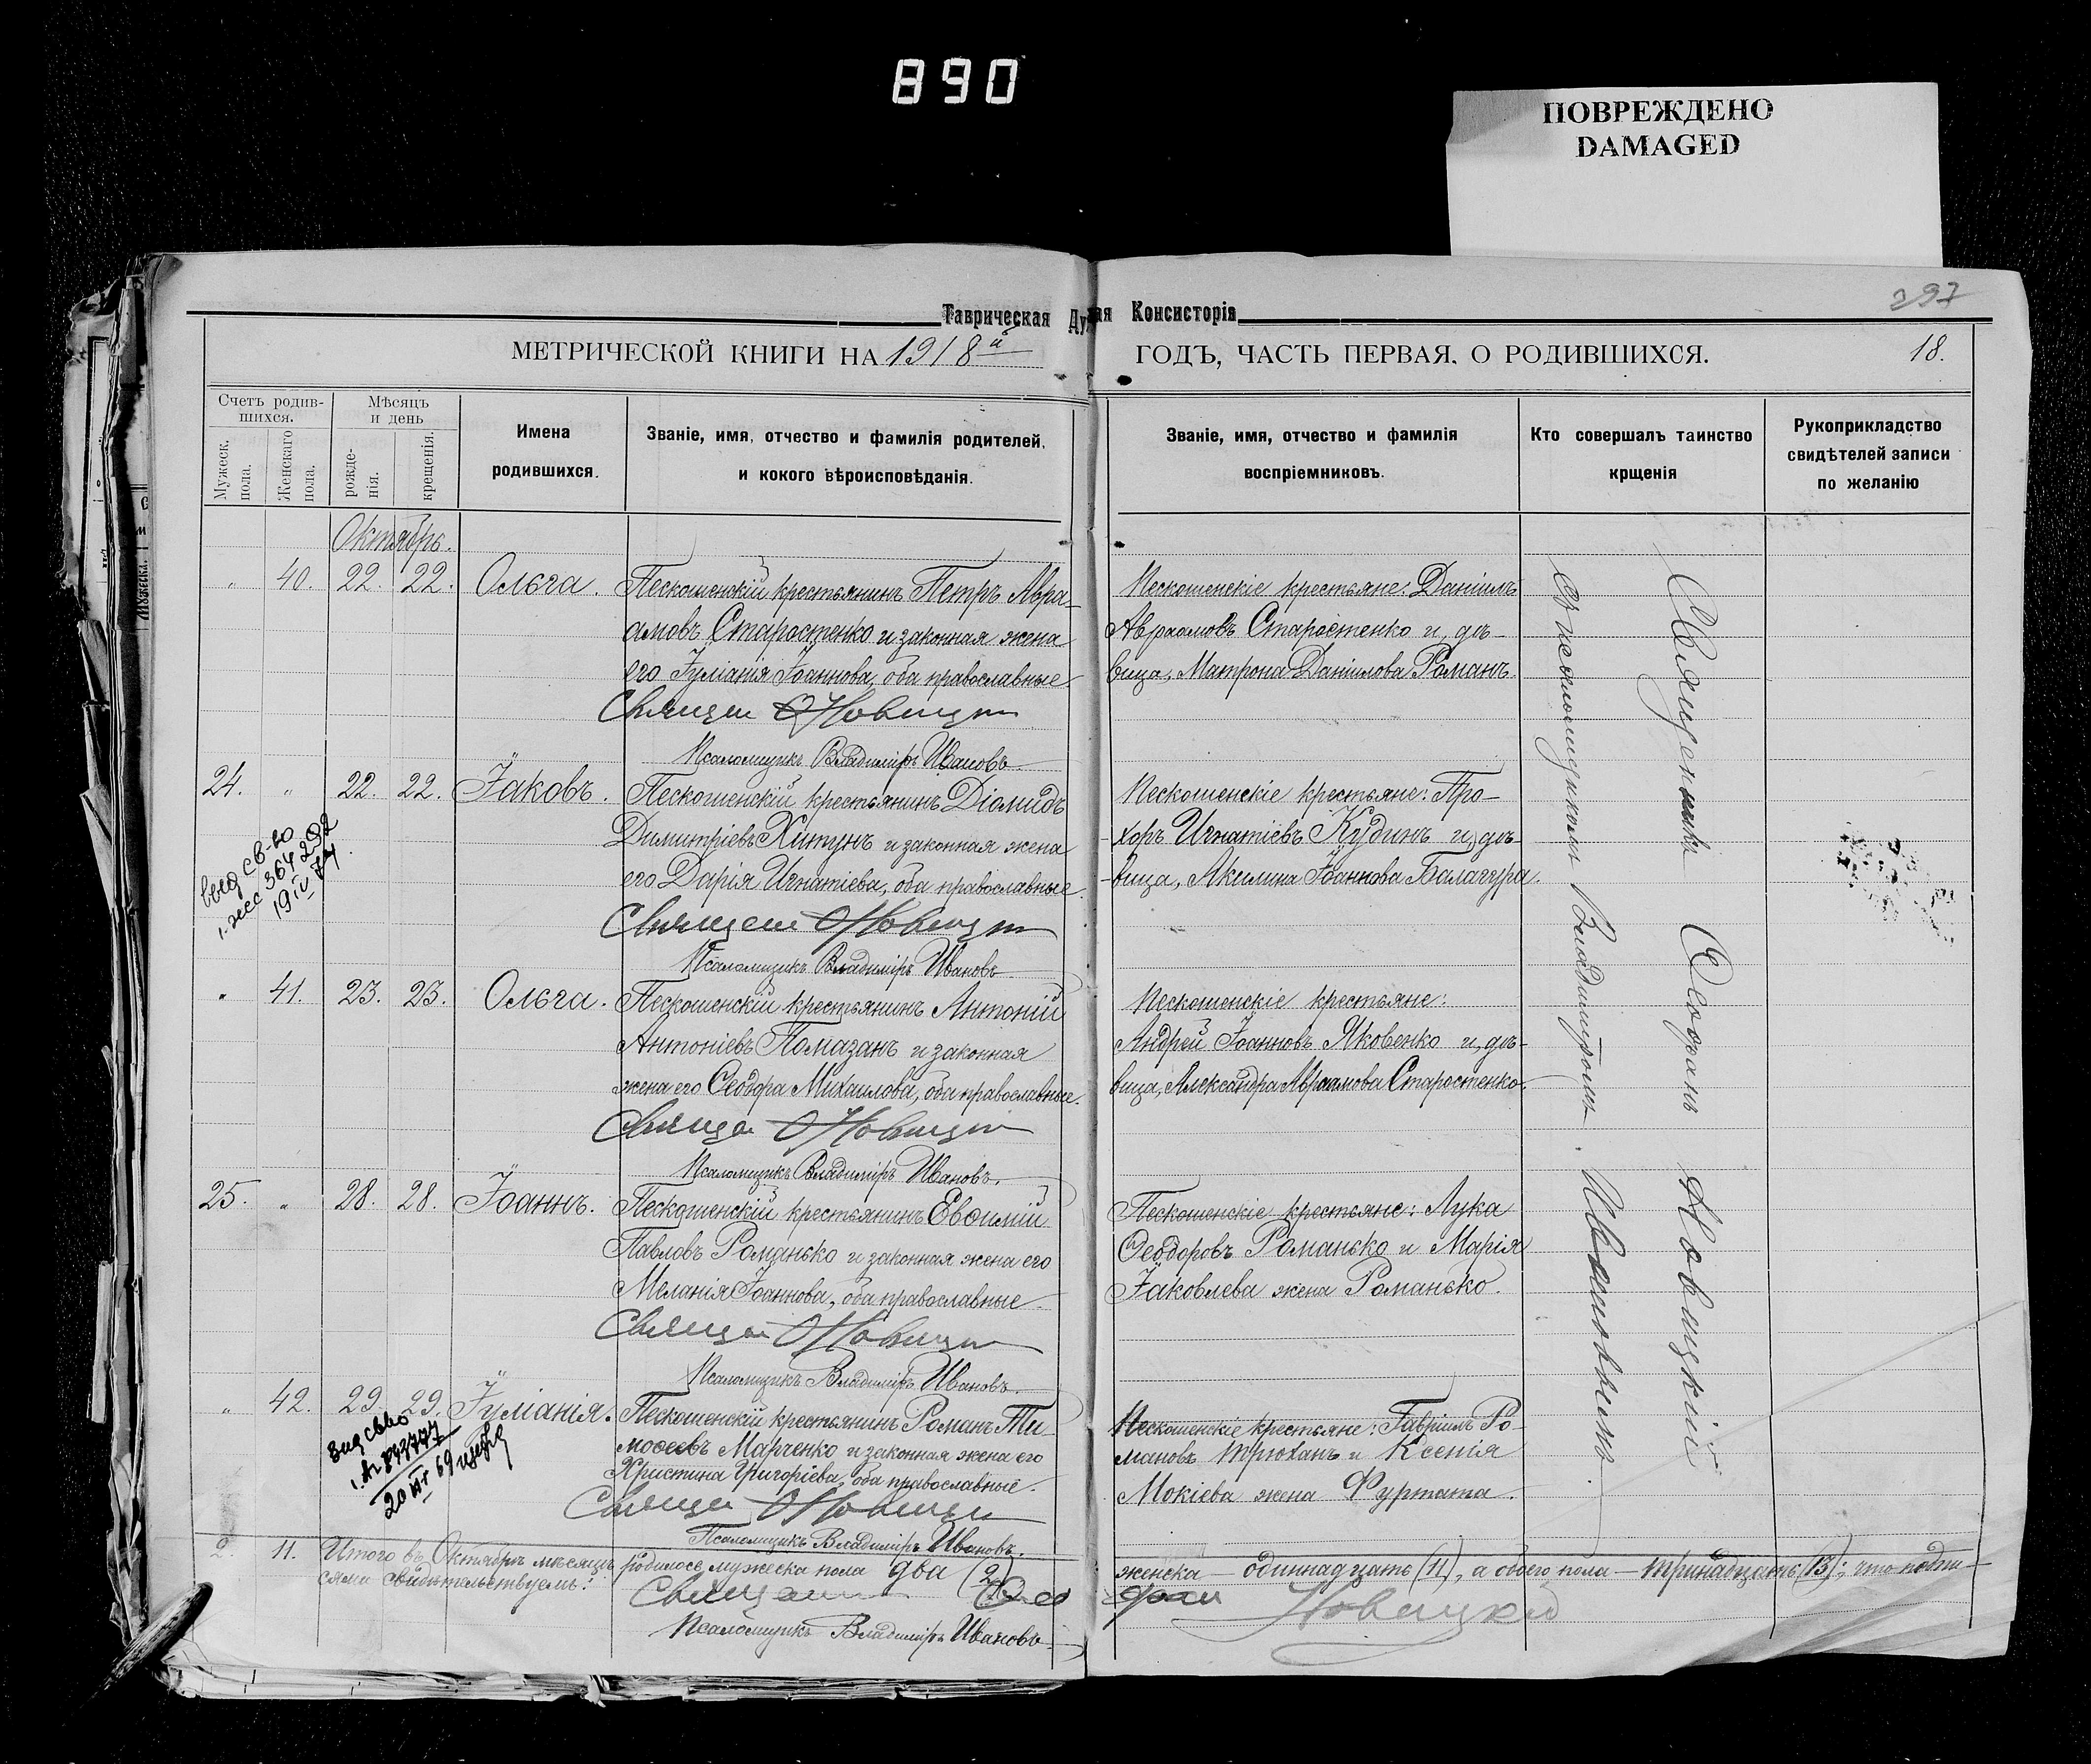 890
ПОВРЕЖДЕНО
DAMAGED
297
Таврическая Ду
ая Консисторія
МЕТРИЧЕСКОЙ КНИГИ НА 1918й
ГОДЪ, ЧАСТЬ ПЕРВАЯ, О РОДИВШИХСЯ.
18.
Счетъ родив-
шихся.
Мужеск. пола.
Женскаго пола.
Мѣсяцъ
и день
рожде-
нія.
крещенія.
Имена
родившихся.
Званіе, имя, отчество и фамилія родителей,
и кокого вѣроисповѣданія.
Званіе, имя, отчество и фамилія
воспріемниковъ.
Кто совершалъ таинство
крщенія
Рукоприкладство
свидѣтелей записи
по желанію
Октябрь.
" 40. 22. 22. Ольга. Пескошенскій крестьянинъ Петръ Авра-
амовъ Старостенко и законная жена
его Іуліанія Іоаннова, оба православные.
Псаломщикъ Владиміръ Ивановъ
Пескошенскіе крестьяне: Даніилъ
Авраамовъ Старостенко и, дѣ-
вица, Матрона Даніилова Романъ.
24. " 22. 22. Іаковъ. Пескошенскій крестьянинъ Діомидъ
Димитріевъ Хитунъ и законная жена
его Дарія Игнатіева, оба православные.
Псаломщикъ Владиміръ Ивановъ
Пескошенскіе крестьяне: Про-
хоръ Игнатіевъ Кудинъ и, дѣ-
вица, Акилина Іоаннова Балагура.
" 41. 23. 23. Ольга. Пескошенскій крестьянинъ Антоній
Антоніевъ Помазанъ и законная
жена его Ѳеодора Михаилова, оба православные.
Псаломщикъ Владиміръ Ивановъ.
Пескошенскіе крестьяне:
Андрей Іоанновъ Яковенко и, дѣ-
вица, Александра Авраамова Старостенко.
25. " 28. 28. Іоаннъ. Пескошенскій крестьянинъ Евѳимій
Павловъ Романько и законная жена его
Меланія Іоаннова, оба православные.
Псаломщикъ Владиміръ Ивановъ.
Пескошенскіе крестьяне: Лука
Ѳеодоровъ Романько и Марія
Іаковлева жена Романько.
" 42. 29. 29. Іуліанія. Пескошенскій крестьянинъ Романъ Ти-
моѳеевъ Марченко и законная жена его
Христина Григоріева, оба православные.
Псаломщикъ Владиміръ Ивановъ.
Пескошенскіе крестьяне: Гавріилъ Ро-
мановъ Трюханъ и Ксенія
Мокіева жена Фуртата.
Священникъ Ѳеофанъ Новицкій
съ псаломщикомъ Владиміромъ Ивановымъ.
2. 11. Итого въ Октябрѣ мѣсяцѣ родилось мужеска пола два (2)
женска — одиннадцать (11), а обоего пола — тринадцать (13); что подпи-
семъ свидѣтельствуемъ:
Новицкій
Псаломщикъ Владиміръ Ивановъ